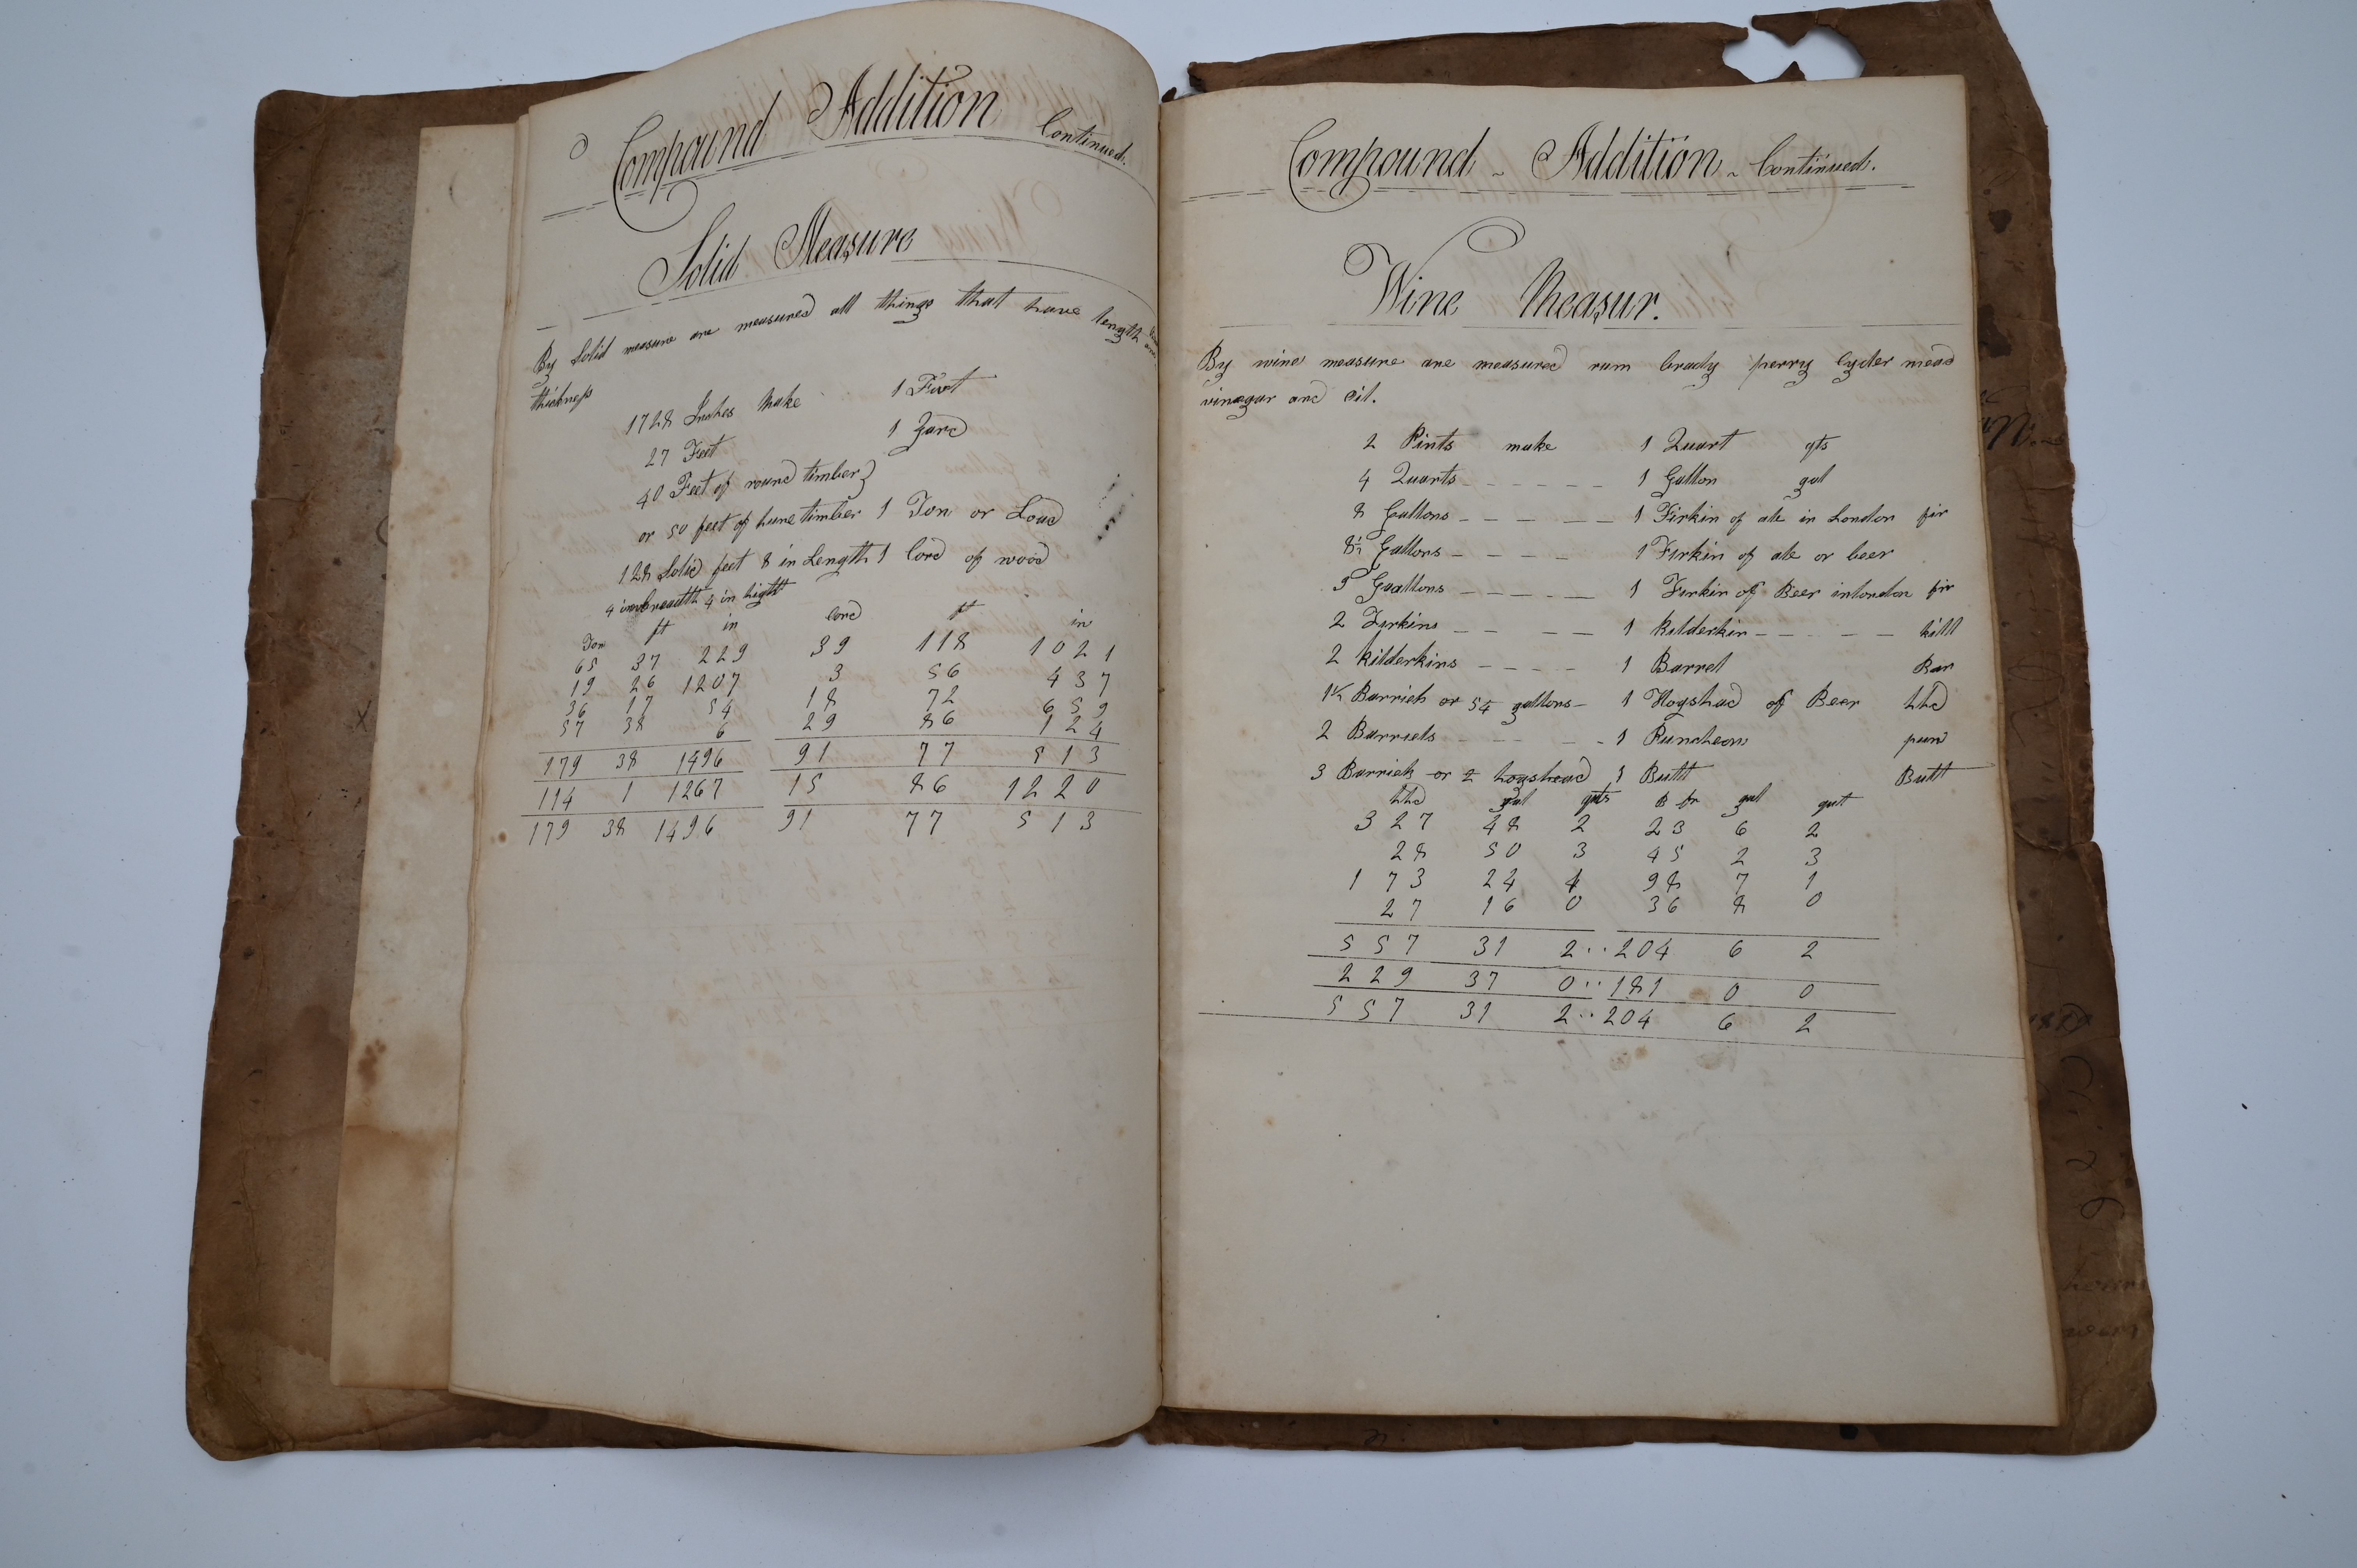 Compound Addition Continued.
Solid Measure
By Solid measure are measured all things that have length
thickness
1728 Inches Make 1 Foot
27 Feet 1 Yard
40 Feet of round timber }
or 50 feet of hune timber 1 Ton or Load
128 Solid feet 8 in Length 1 Cord of wood
4 in breadth 4 in hight
Ton ft in Cord ft in
65 37 229 39 118 1021
19 26 1207 3 56 437
36 17 54 18 72 659
57 38 6 29 86 124
179 38 1496 91 77 513
114 1 1267 15 86 1220
179 38 1496 91 77 513
Compound Addition Continued.
Wine Measur.
By wine measure are measured rum brady perry Cyder mead
vinegar and Oil.
2 Pints make 1 Quart qts
4 Quarts 1 Gallon gal
8 Gallons 1 Firkin of ale in London fir
8½ Gallons 1 Firkin of ale or beer
9 Guallons 1 Firkin of Beer in London fir
2 Firkins 1 Kilderkin kill
2 Kilderkins 1 Barrel Bar
1½ Barriels or 54 gallons 1 Hogshead of Beer hhd
2 Barriels 1 Puncheon pun
3 Barriels or 2 hogshead 1 Butt Butt
hhd gal qts B fir gal qut
327 48 2 23 6 2
28 50 3 45 2 3
173 24 4 98 7 1
27 16 0 36 8 0
557 31 2 204 6 2
229 37 0 181 0 0
557 31 2 204 6 2